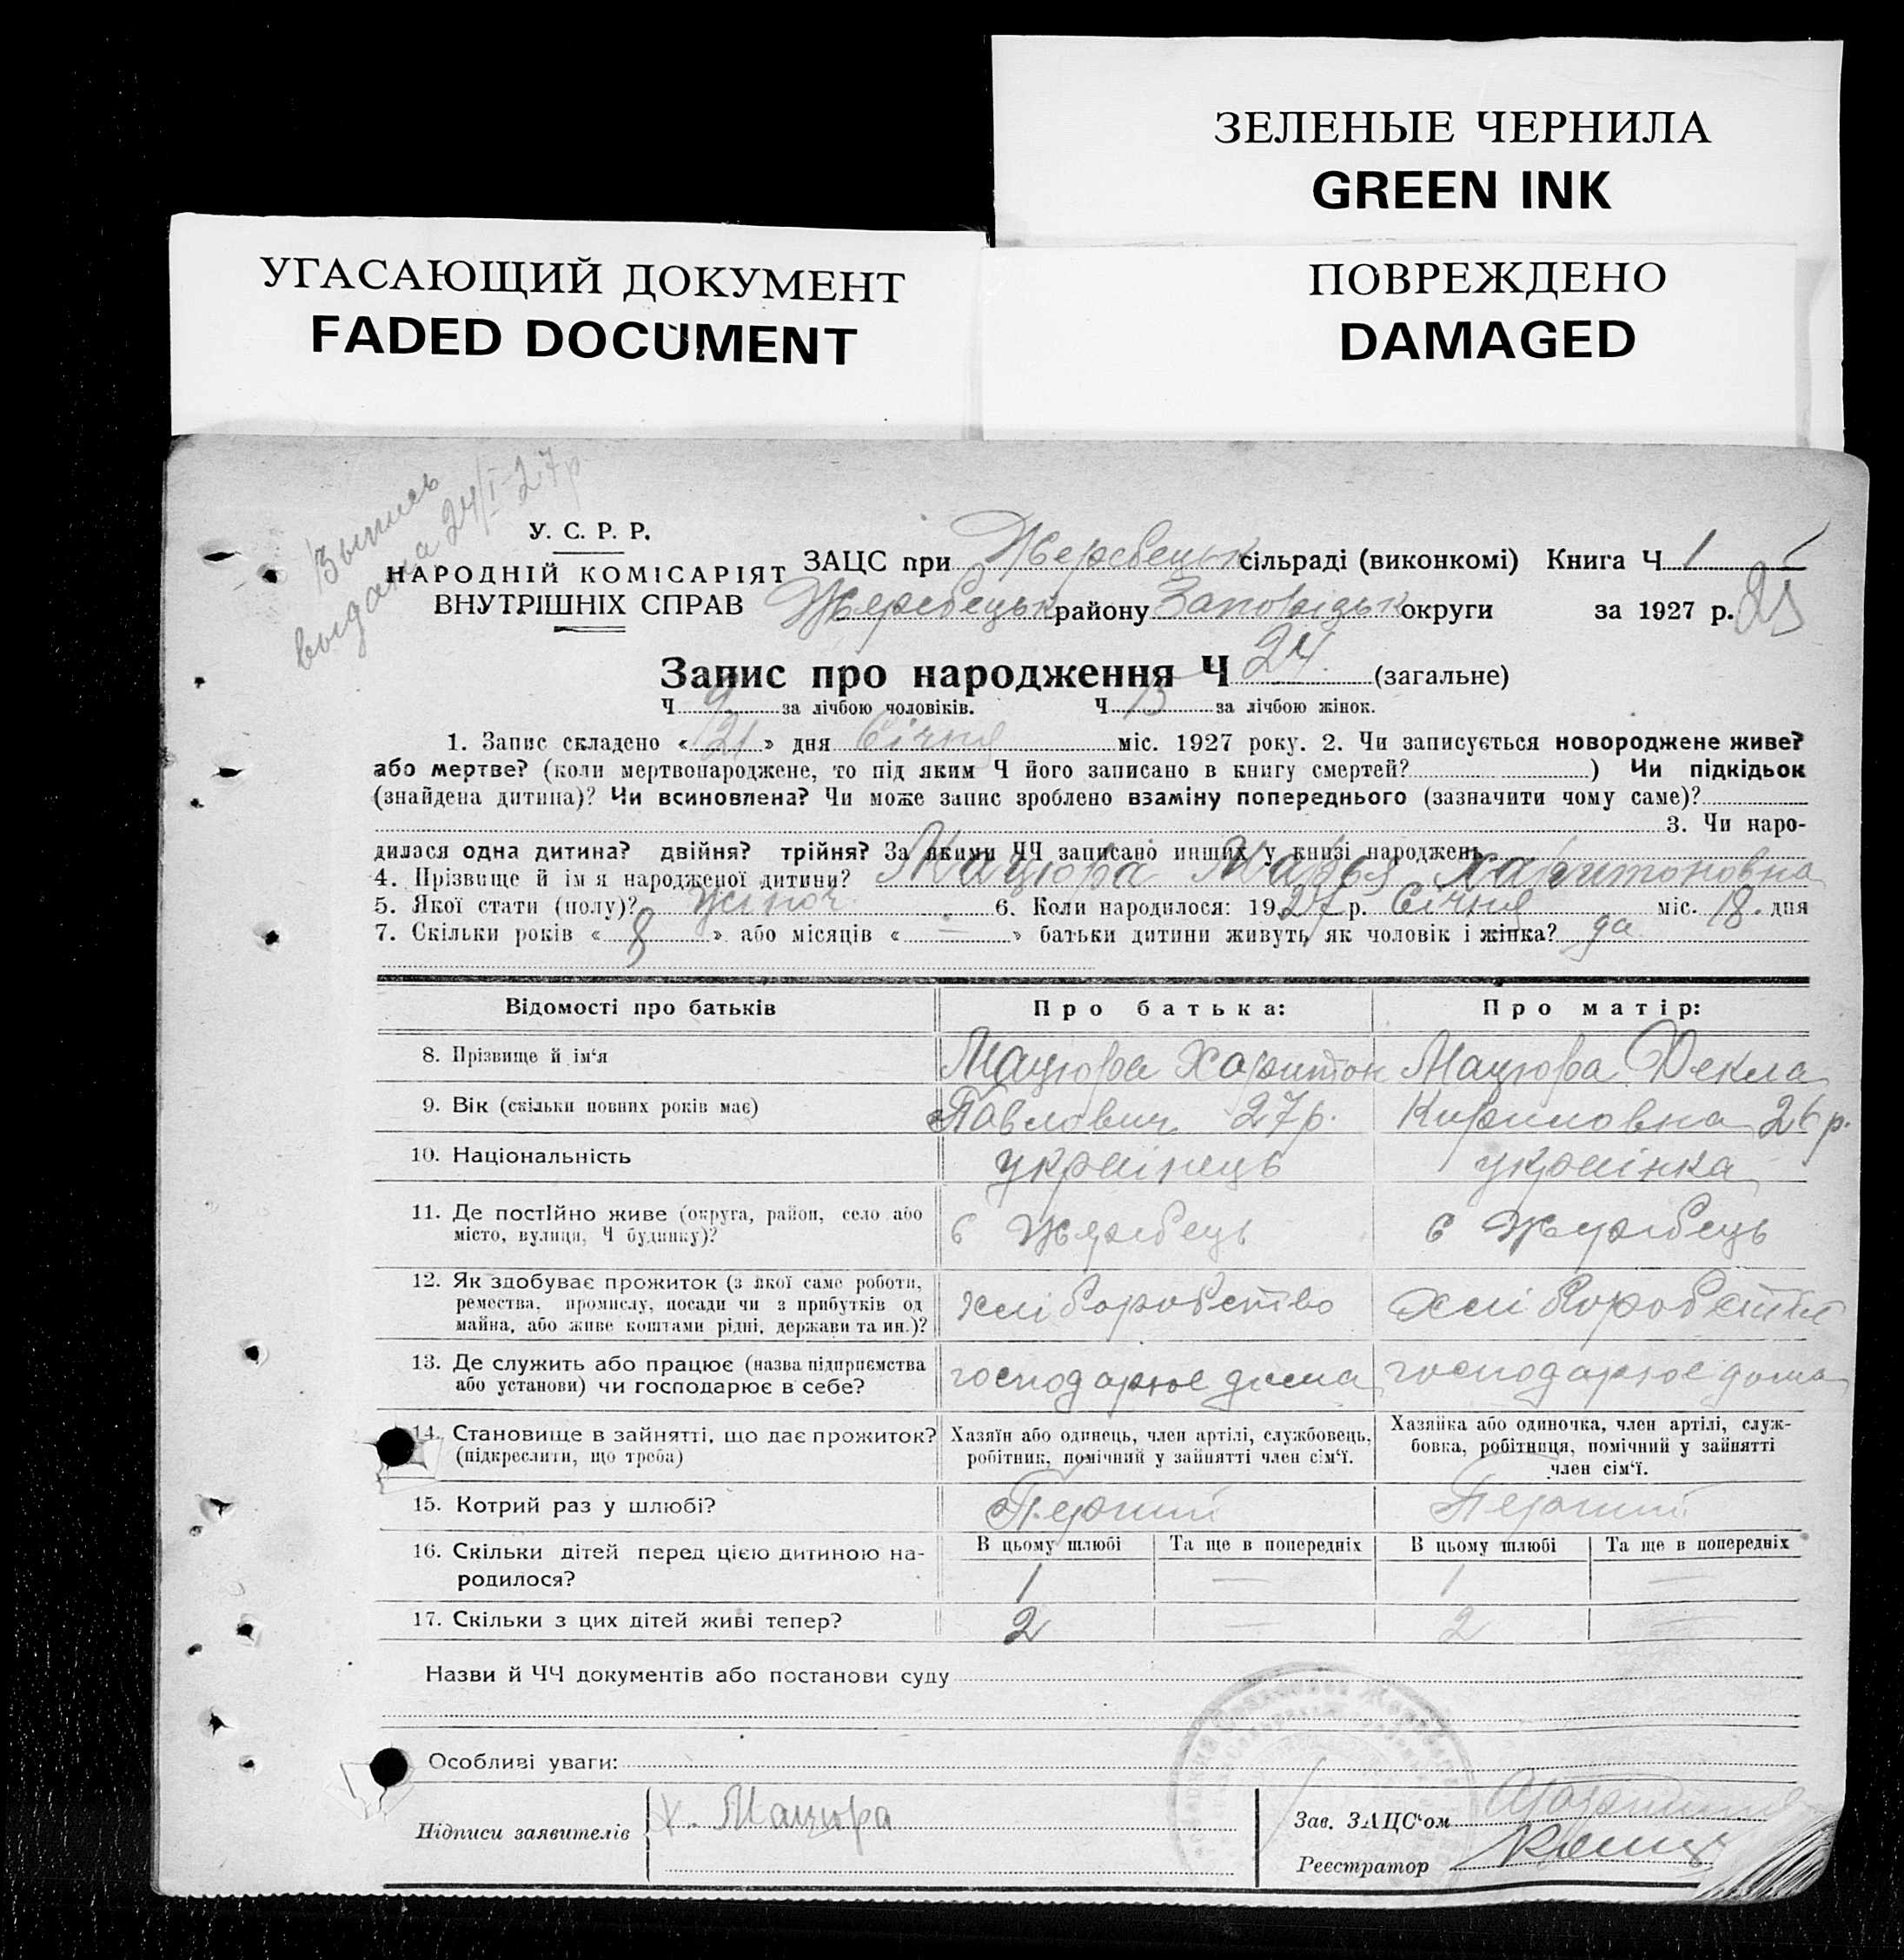 ЗЕЛЕНЫЕ ЧЕРНИЛА
GREEN INK
УГАСАЮЩИЙ ДОКУМЕНТ
FADED DOCUMENT
ПОВРЕЖДЕНО
DAMAGED
Выпись
выдана 24/I-27р.
У. С. Р. Р.
НАРОДНІЙ КОМІСАРІЯТ
ВНУТРІШНІХ СПРАВ
ЗАЦС при Жеребецьк сільраді (виконкомі) Книга Ч 1
Жеребецьк району Запорізьк округи за 1927 р. 25
Запис про народження Ч 24. (загальне)
Ч 9 за лічбою чоловіків. Ч 15 за лічбою жінок.
1. Запис складено « 21 » дня Січня міс. 1927 року. 2. Чи записується новороджене живе?
або мертве? (коли мертвонароджене, то під яким Ч його записано в книгу смертей? ) Чи підкідьок
(знайдена дитина)? Чи всиновлена? Чи може запис зроблено взаміну попереднього (зазначити чому саме)?
3. Чи наро-
дилася одна дитина? двійня? трійня? За якими ЧЧ записано инших у книзі народжень
4. Прізвище й ім я народженої дитини? Мацюра Марья Харитоновна
5. Якої стати (полу)? жіноч. 6. Коли народилося: 1927 р. Січня міс. 18. дня
7. Скільки років « 8 » або місяців « — » батьки дитини живуть як чоловік і жінка? да
Відомості про батьків Про батька: Про матір:
8. Прізвище й ім‘я Мацюра Харитон Мацюра Фекла
9. Вік (скільки повних років має) Павлович 27р. Кириловна 26р.
10. Національність українець українка
11. Де постійно живе (округа, район, село або
місто, вулиця, Ч будинку)? с Жеребець с Жеребець
12. Як здобуває прожиток (з якої саме роботи,
ремества, промислу, посади чи з прибутків од
майна, або живе коштами рідні, держави та ин.)? хліборобство хліборобство
13. Де служить або працює (назва підприємства
або установи) чи господарює в себе? господарює дома господарює дома
14. Становище в зайнятті, що дає прожиток?
(підкреслити, що треба)
Хазяїн або одинець, член артілі, службовець,
робітник, помічний у зайнятті член сім‘ї.
Хазяйка або одиночка, член артілі, служ-
бовка, робітниця, помічний у зайнятті
член сім‘ї.
15. Котрий раз у шлюбі? Перший Перший
16. Скільки дітей перед цією дитиною на-
родилося?
В цьому шлюбі Та ще в попередніх В цьому шлюбі Та ще в попередніх
1 — 1 —
17. Скільки з цих дітей живі тепер? 2 — 2 —
Назви й ЧЧ документів або постанови суду
Особливі уваги:
Підписи заявителів Х. Мацюра
Зав. ЗАЦС‘ом
Реєстратор